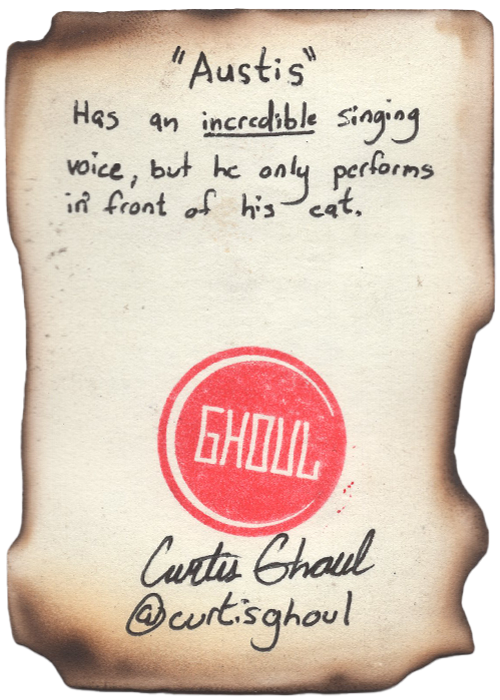 "Austis"
Has an incredible singing
voice, but he only performs
in front of his cat.
GHOUL
Curtis Ghoul
@curtisghoul